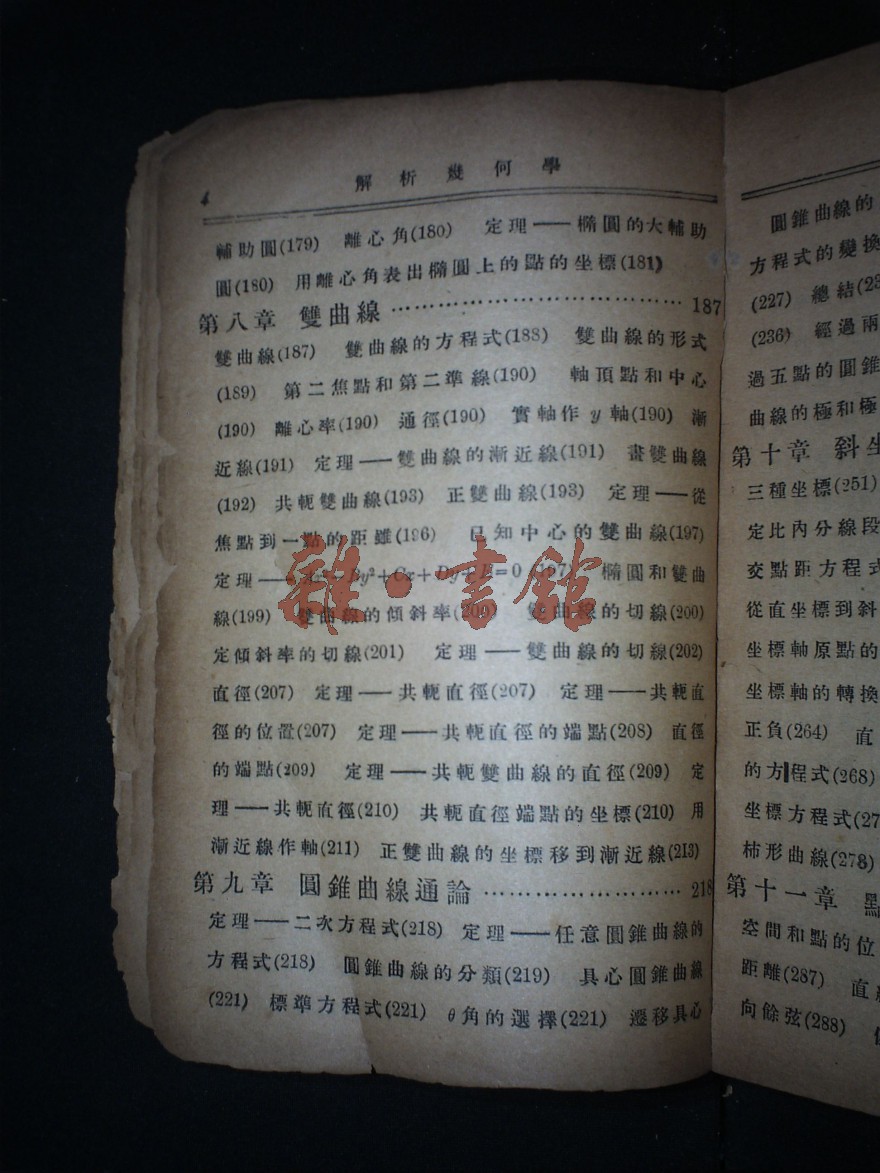 4
解析幾何學
輔助圓(179) 離心角(180) 定理——橢圓的大輔助
圓(180) 用離心角表出橢圓上的點的坐標(181)
第八章 雙曲線……………………………187
雙曲線(187) 雙曲線的方程式(188) 雙曲線的形式
(189) 第二焦點和第二準線(190) 軸頂點和中心
(190) 離心率(190) 通徑(190) 實軸作y軸(190) 漸
近線(191) 定理——雙曲線的漸近線(191) 畫雙曲線
(192) 共軛雙曲線(193) 正雙曲線(193) 定理——從
焦點到一點的距離(196) 已知中心的雙曲線(197)
定理——By²+Cx+Dy+E=0 (197) 橢圓和雙曲
線(199) 雙曲線的傾斜率(200) 雙曲線的切線(200)
定傾斜率的切線(201) 定理——雙曲線的切線(202)
直徑(207) 定理——共軛直徑(207) 定理——共軛直
徑的位置(207) 定理——共軛直徑的端點(208) 直徑
的端點(209) 定理——共軛雙曲線的直徑(209) 定
理——共軛直徑(210) 共軛直徑端點的坐標(210) 用
漸近線作軸(211) 正雙曲線的坐標移到漸近線(213)
第九章 圓錐曲線通論…………………218
定理——二次方程式(218) 定理——任意圓錐曲線的
方程式(218) 圓錐曲線的分類(219) 具心圓錐曲線
(221) 標準方程式(221) θ角的選擇(221) 遷移具心
雜·書館
圓錐曲線的
方程式的變換
(227) 總結(23
(236) 經過兩
過五點的圓錐
曲線的極和極
第十章 斜坐
三種坐標(251)
定比內分線段
交點距方程式
從直坐標到斜
坐標軸原點的
坐標軸的轉換
正負(264) 直
的方程式(268)
坐標方程式(27
柿形曲線(278)
第十一章 點
空間和點的位
距離(287) 直
向餘弦(288)